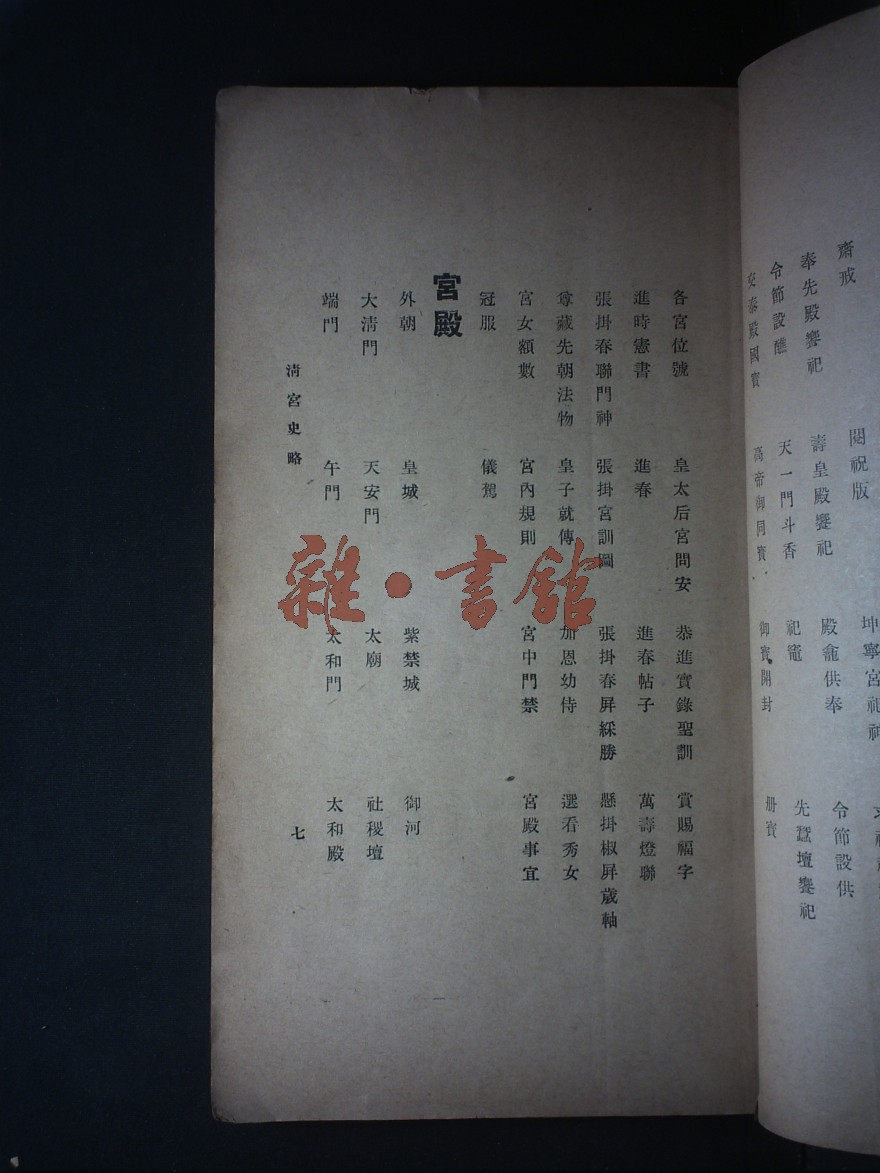 齋戒　閱祝版　坤寧宮祀神
奉先殿饗祀　壽皇殿饗祀　殿龕供奉　令節設供
令節設醮　天一門斗香　祀竈　先蠶壇饗祀
交泰殿國寶　高帝御同寶　御寶開封　册寶
各宮位號　皇太后宮問安　恭進實錄聖訓　賞賜福字
進時憲書　進春　進春帖子　萬壽燈聯
張掛春聯門神　張掛宮訓圖　張掛春屏綵勝　懸掛椒屏歲軸
尊藏先朝法物　皇子就傅　加恩幼侍　選看秀女
宮女額數　宮內規則　宮中門禁　宮殿事宜
冠服　儀駕
宮殿
外朝　皇城　紫禁城　御河
大淸門　天安門　太廟　社稷壇
端門　午門　太和門　太和殿
淸宮史略　七
雜·書館